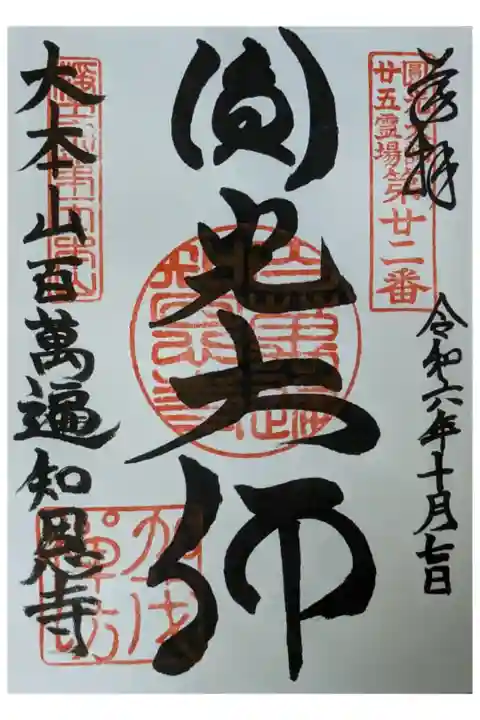 奉拝
圓光大師
廿五霊場第廿二番
令和六年十月七日
圓光大師
大本山百萬遍知恩寺